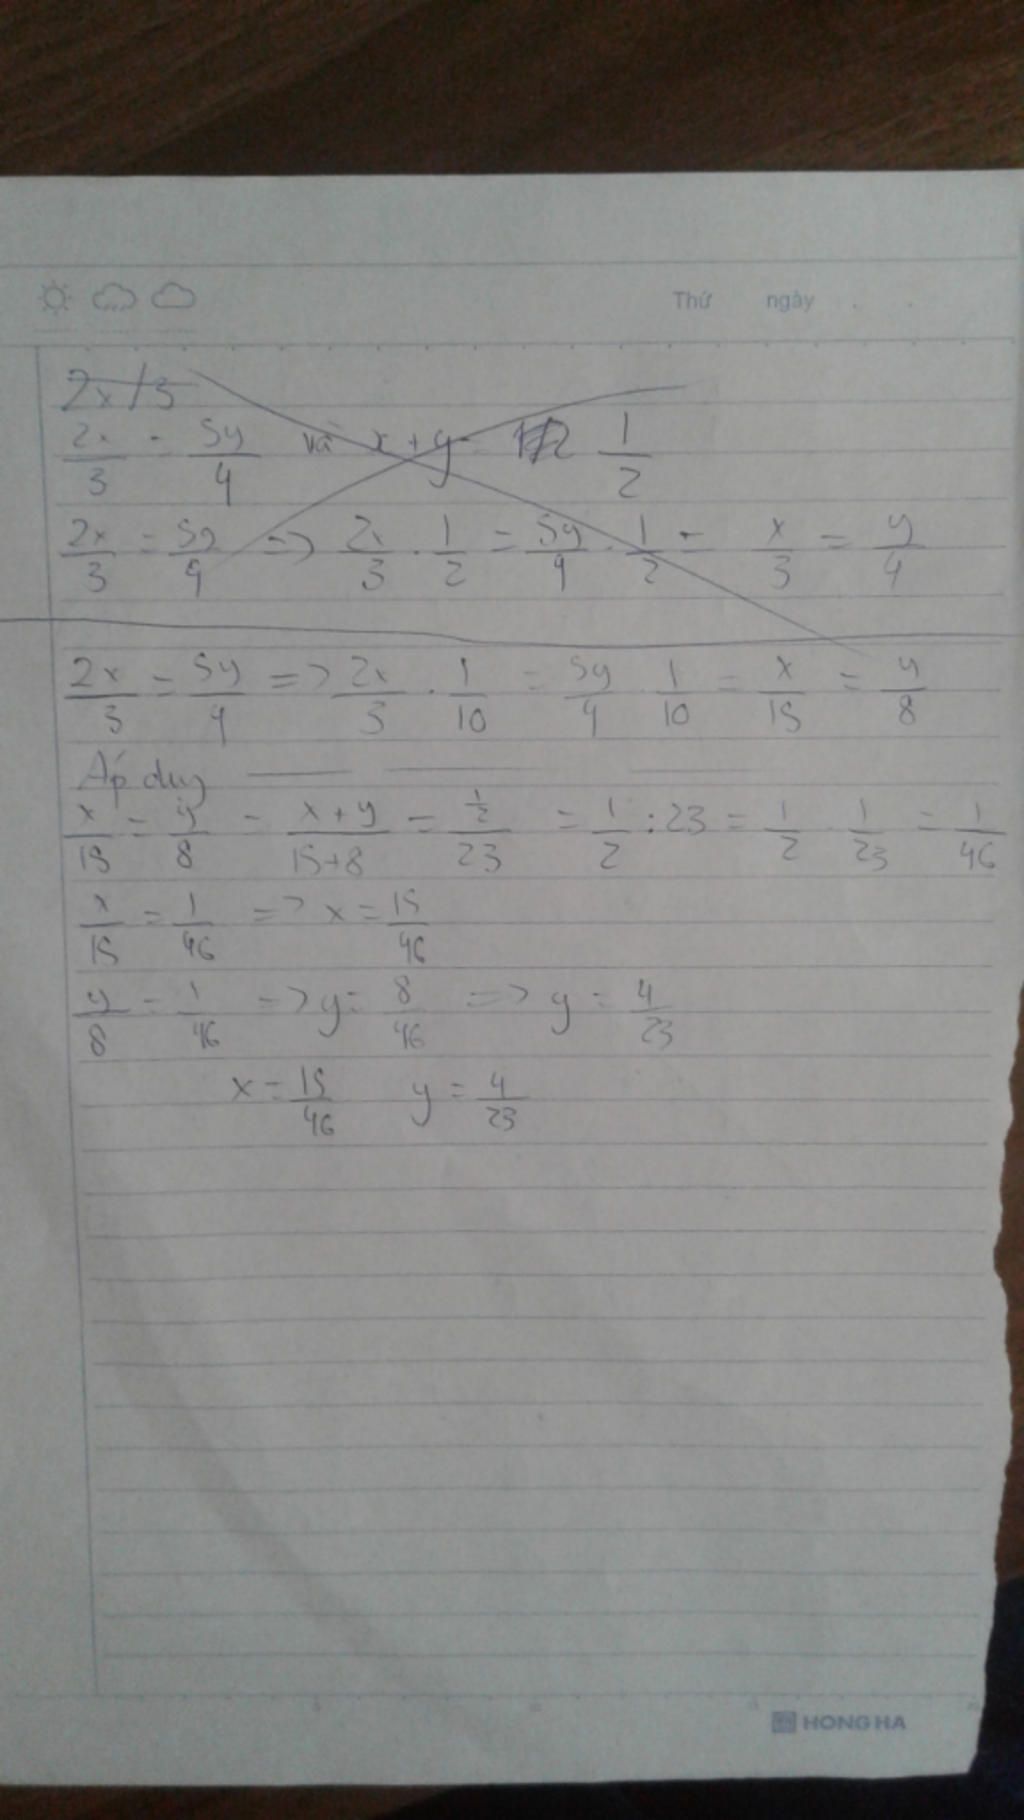 Thứ ngày
2x/3
2x/3 = 5y/4 và x + y = 1/2
2x/3 = 5y/4 => 2x/3 . 1/2 = 5y/4 . 1/2 = x/3 = y/4
2x/3 = 5y/4 => 2x/3 . 1/10 = 5y/4 . 1/10 = x/15 = y/8
Áp dug
x/15 = y/8 = x+y/15+8 = 1/2/23 = 1/2 : 23 = 1/2 . 1/23 = 1/46
x/15 = 1/46 => x = 15/46
y/8 = 1/46 => y = 8/46 => y = 4/23
x = 15/46 y = 4/23
HONG HA